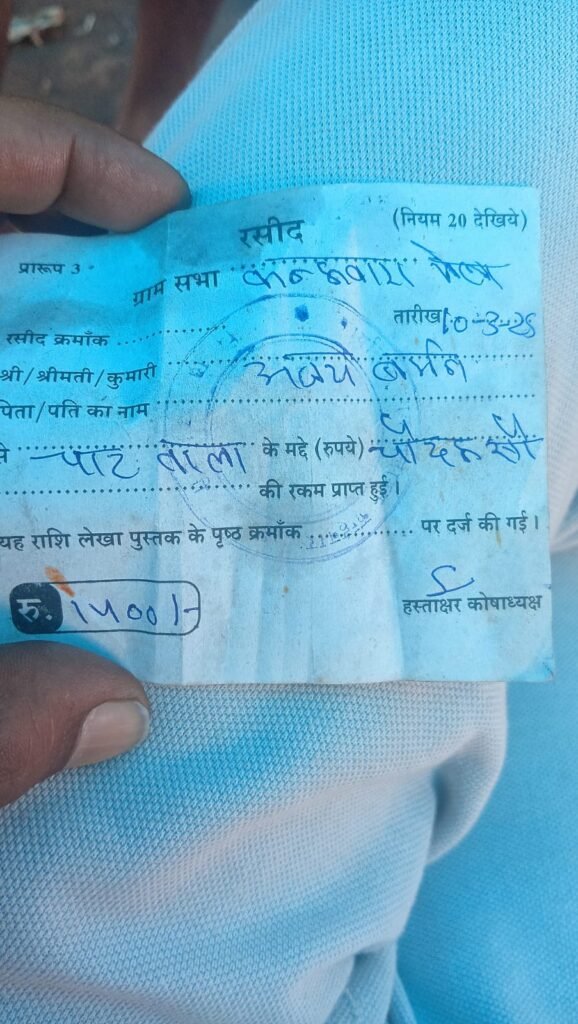 रसीद
(नियम 20 देखिये)
प्रारूप 3
ग्राम सभा कन्हवारा मेला
रसीद क्रमाँक
तारीख 10-3-25
श्री/श्रीमती/कुमारी अजय बर्मन
पिता/पति का नाम
चाट वाला के मद्दे (रुपये) चौदह सौ
की रकम प्राप्त हुई।
यह राशि लेखा पुस्तक के पृष्ठ क्रमाँक पर दर्ज की गई।
रु. 1400/-
हस्ताक्षर कोषाध्यक्ष